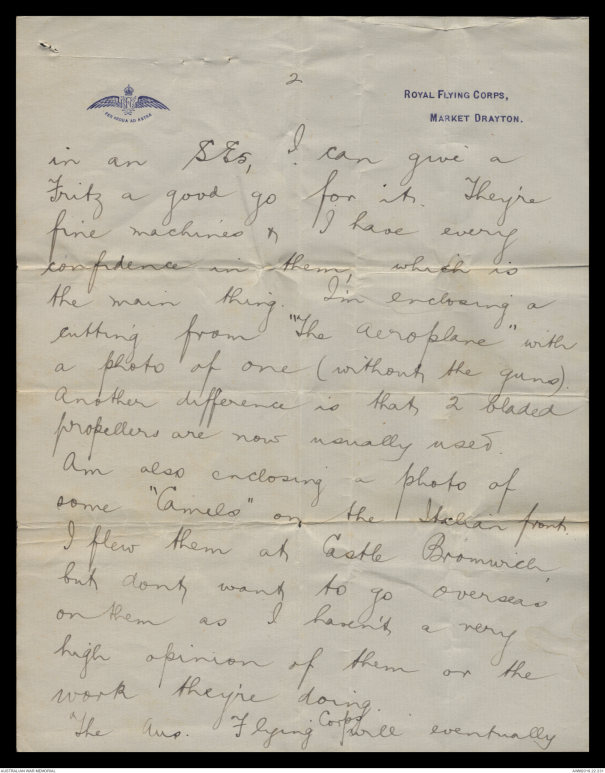 2
ROYAL FLYING CORPS,
MARKET DRAYTON.
PER ARDUA AD ASTRA
in an SE5, I can give a
Fritz a good go for it. They're
fine machines & I have every
confidence in them, which is
the main thing. I'm enclosing a
cutting from "The Aeroplane" with
a photo of one (without the guns).
Another difference is that 2 bladed
propellers are now usually used.
Am also enclosing a photo of
some "Camels" on the Italian front.
I flew them at Castle Bromwich,
but dont want to go overseas
on them as I haven't a very
high opinion of them or the
work they're doing.
The Aus. Flying Corps will eventually
AUSTRALIAN WAR MEMORIAL